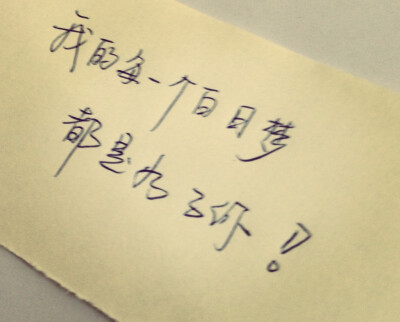 我的每一个白日梦
都是为了你！